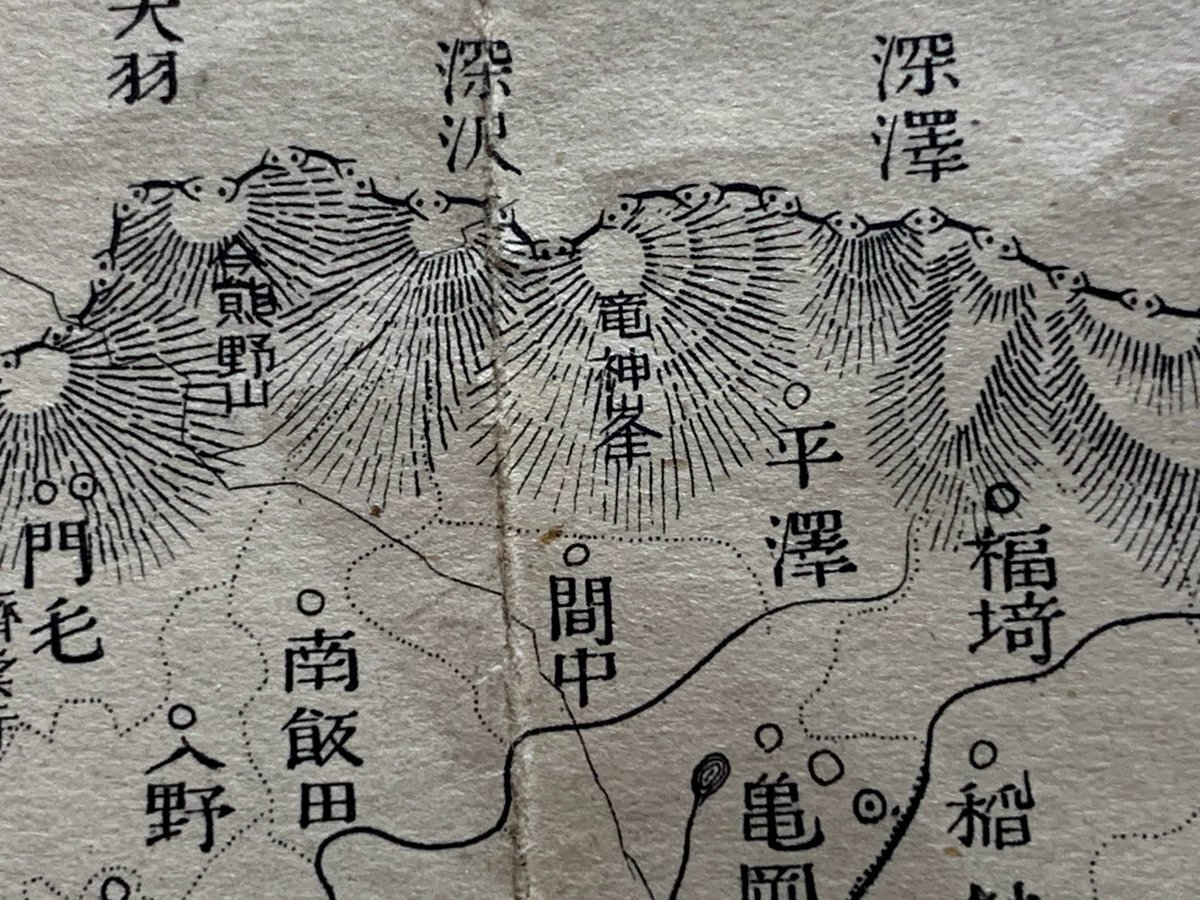 大羽
深沢
深澤
熊野山
竜神峯
平澤
福埼
門毛
間中
南飯田
入野
亀岡
稲